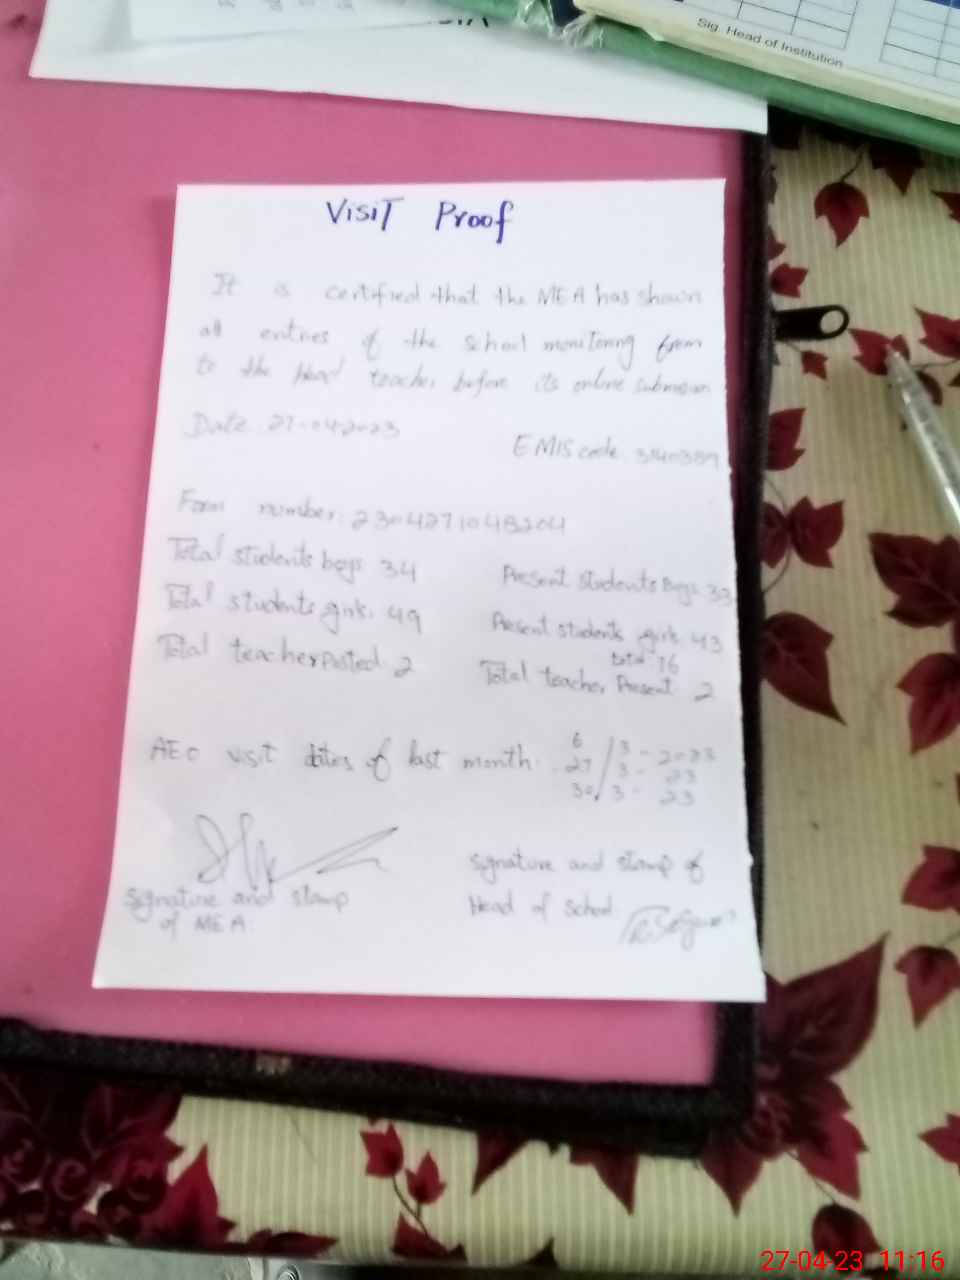 Sig. Head of Institution
Visit Proof
It is certified that the MEA has shown
all entries of the school monitoring from
to the Head teacher before its online submission
Date. 27-04-2023
EMIS code. 3140389
Form number. 2304271048204
Total students boys 34
Present students Boys. 33
Total students girls. 49
Present students girls 43
total 76
Total teacher posted. 2
Total teacher Present 2
AEO visit dates of last month.
6/3-2023
27/3-23
30/3-23
signature and stamp
of MEA.
signature and stamp of
Head of School.
27-04-23 11:16